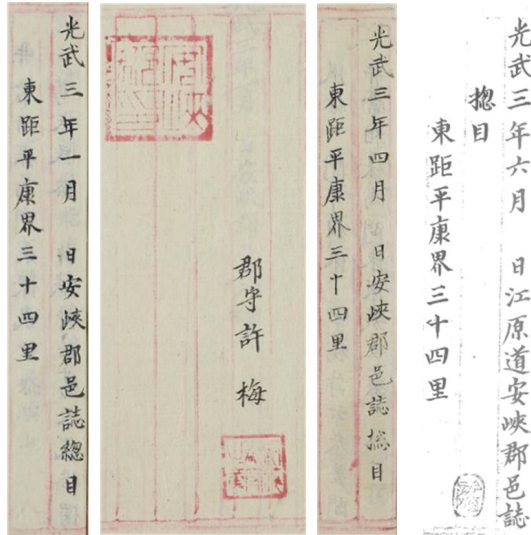 光武三年一月 日安峽郡邑誌總目
東距平康界三十四里
郡守許 梅
光武三年四月 日安峽郡邑誌捴目
東距平康界三十四里
光武三年六月 日江原道安峽郡邑誌
揔目
東距平康界三十四里